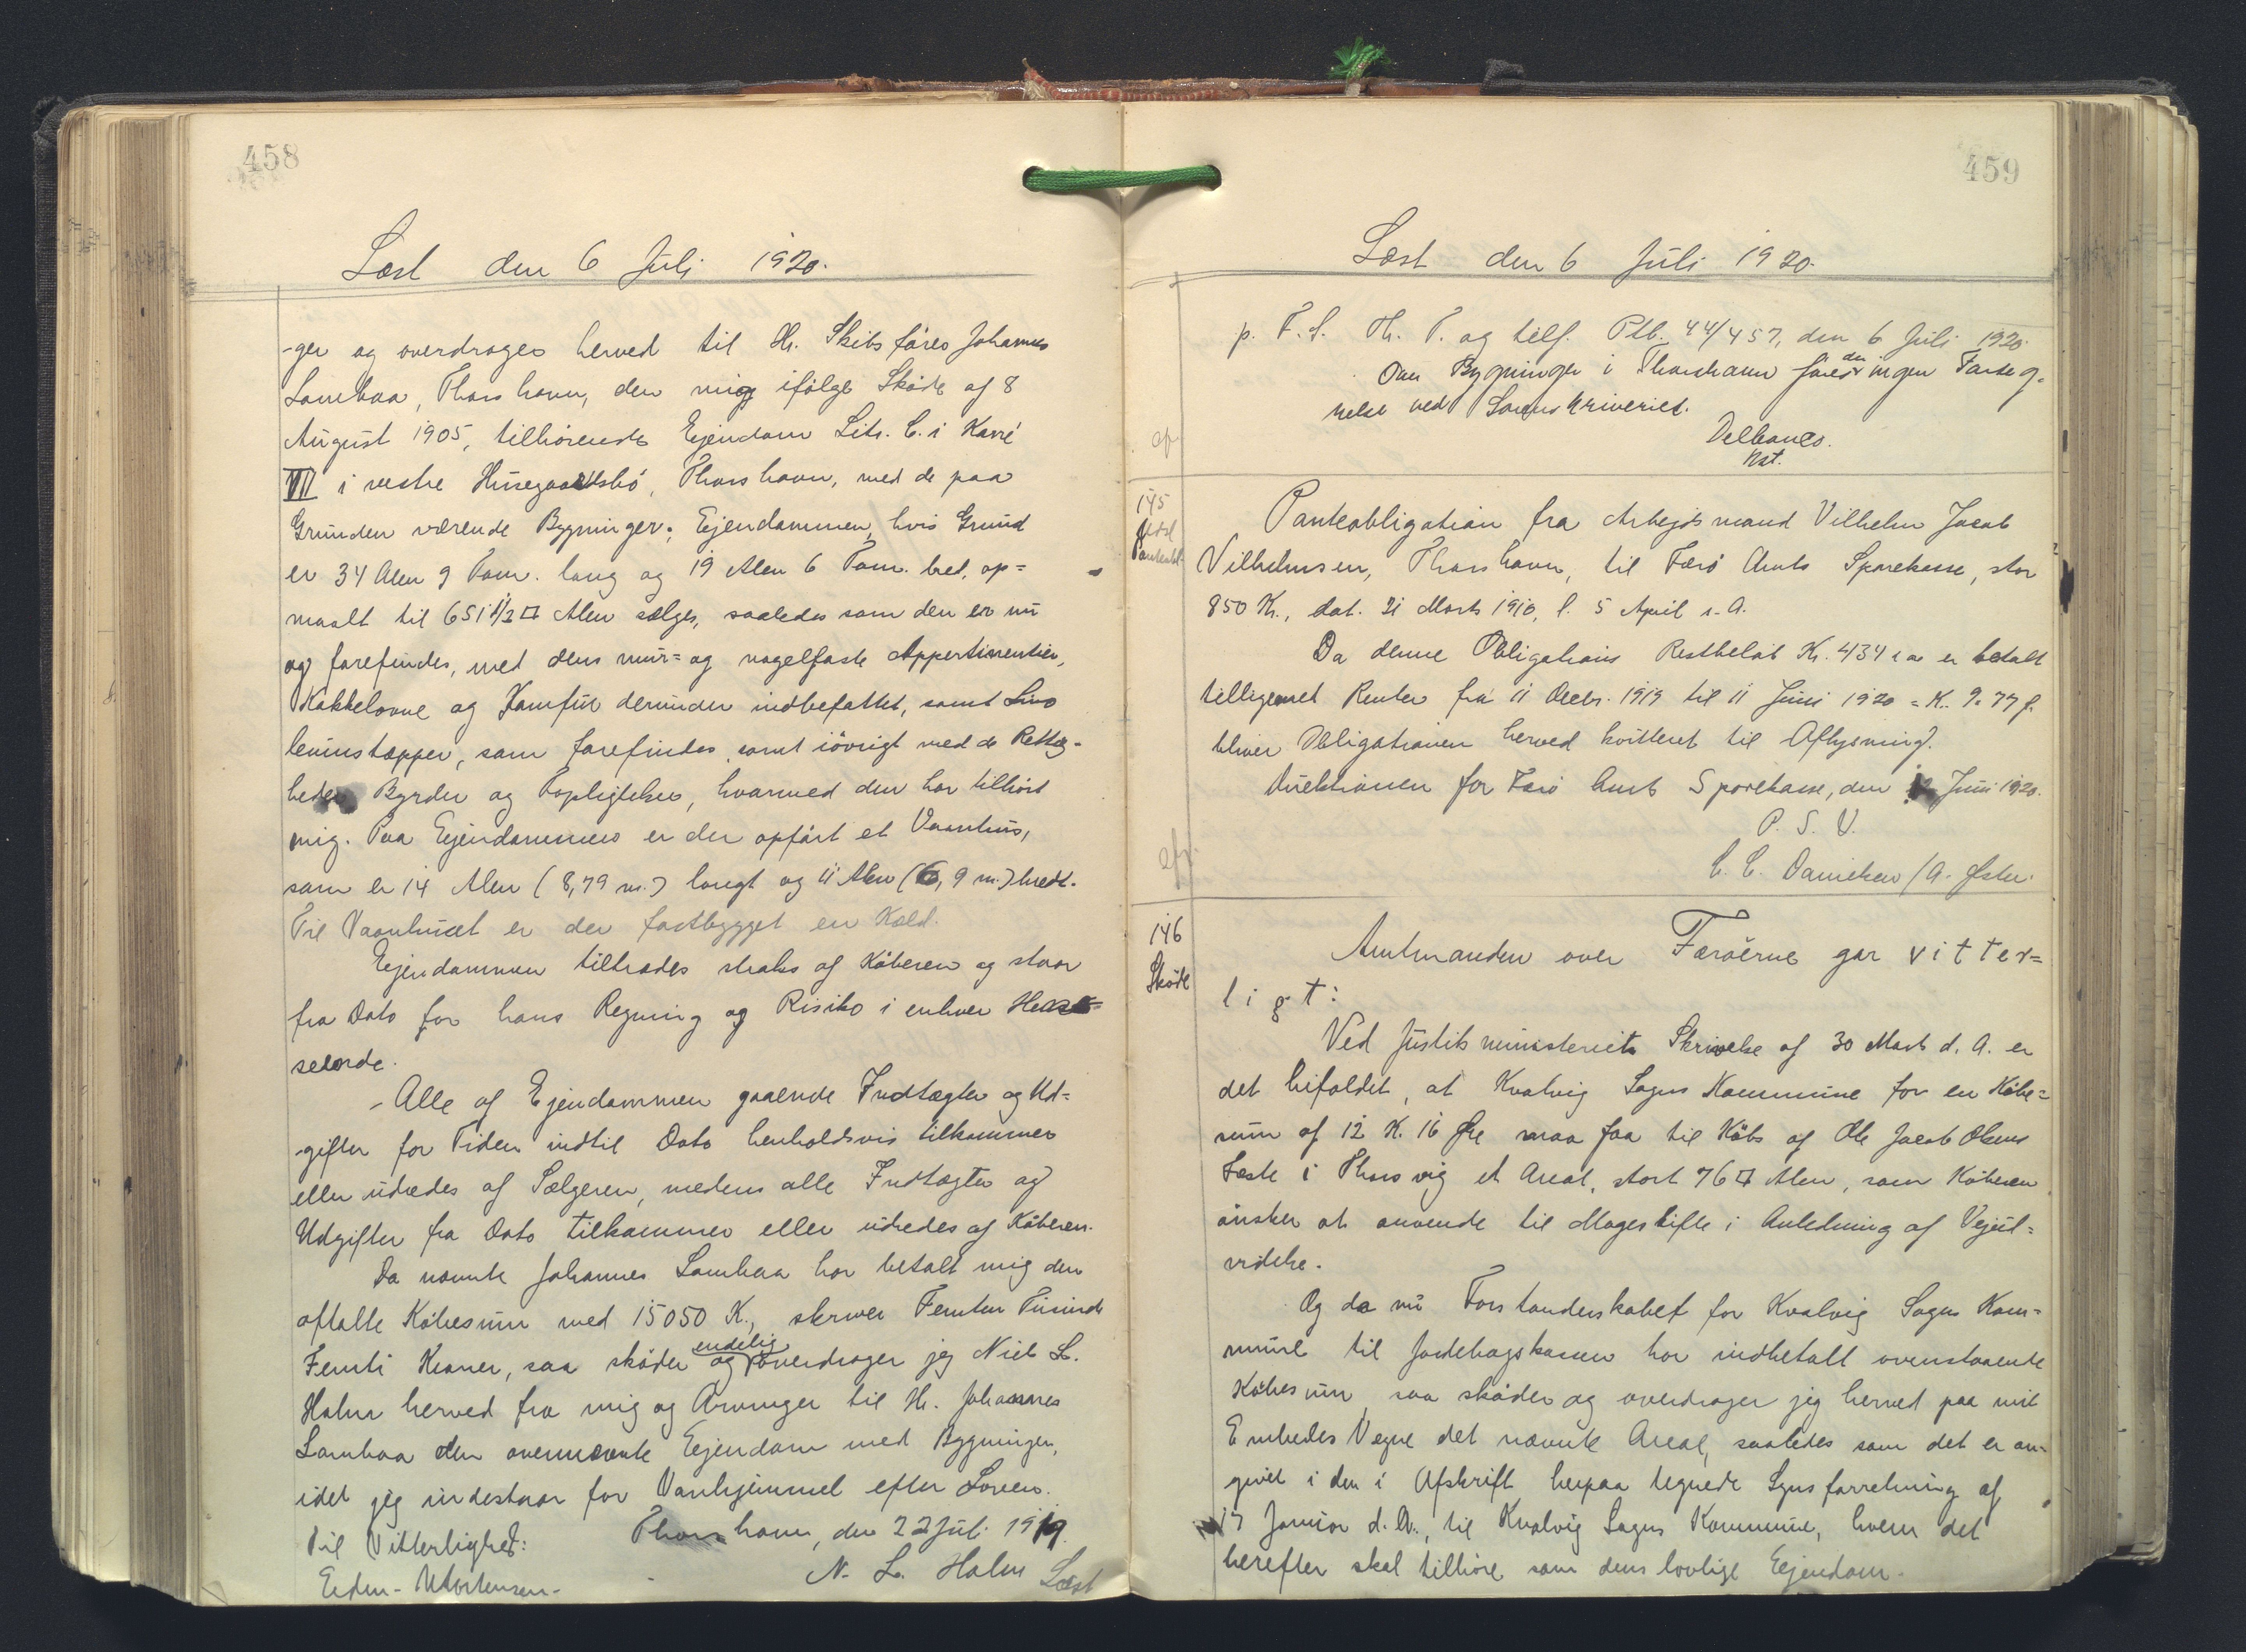 458
Læst den 6 Juli 1920.
-ger og overdrages herved til Hr. Skibsfører Johannes
Lambaa, Thorshavn, den mig ifölge Sköde af 8
August 1905, tilhörende Ejendom Litr. C. i Karré
VII i vestre Húsegaardsbö, Thorshavn, med de paa
Grunden værende Bygninger; Ejendommen, hvis Grund
er 34 Alen 9 Tom. lang og 19 Alen 6 Tom. bred, op=
maalt til 651 1/2 □ Alen sælges, saaledes som den er nu
og forefindes, med dens mur= og nagelfaste Appertinentier,
Kakkelovne og Komfur derunder indbefattet, samt Lino
leumstæpper, som forefindes, samt iövrigt med de Rettig-
heder Byrder og Forpligtelser, hvormed den har tilhört
mig. Paa Ejendommen er der opfört et Vaanhus,
som er 14 Alen (8,79 m.) langt og 11 Alen (6,9 m.) bredt.
Til Vaanhuset er der fastbygget en
Ejendommen tiltrædes straks af Köberen og staar
fra Dato for hans Regning og Risiko i enhver Hen=
seende.
- Alle af Ejendommen gaaende Indtægter og Ud=
-gifter for Tiden indtil Dato henholdsvis tilkommer
eller udredes af Sælgeren, medens alle Indtægter og
Udgifter fra Dato tilkommer eller udredes af Köberen.
Da nævnte Johannes Lambaa har betalt mig den
aftalte Köbesum med 15050 K., skriver Femten Tusinde
Femti Kroner, saa sköder og endelig overdrager jeg Niels L.
Holm herved fra mig og Arvinger til Hr. Johannes
Lambaa den ovennævnte Ejendom med Bygninger,
idet jeg indestaar for Vanhjemmel efter Loven.
Til Vitterlighed: Thorshavn, den 22 Juli 1919.
N. L. Holm Læst
Mortensen-
459
Læst den 6 Juli 1920.
p. F. S. Th. P. og tilf. Ptb. 44/457, den 6 Juli 1920.
Over Bygninger i Thorshavn föres der ingen Forteg-
nelse ved Sorenskriveriet.
Kst.
145
Pantobl.
Panteobligation fra Arbejdsmand Vilhelm Jacob
Vilhelmsen, Thorshavn, til Færö Amts Sparekasse, stor
850 Kr., dat. 31 Marts 1910, l. 5 April s. A.
Da denne Obligations Restbelöb Kr. 434 er betalt
tilligemed Renter fra 11 Decbr. 1919 til 11 Juni 1920 = K. 9.77 f.
bliver Obligationen herved kvitteret til Aflysning.
Direktionen for Færö Amts Sparekasse, den Juni 1920.
P. S. V.
C. C. Danielsen / A.
146
Sköde
Amtmanden over Færöerne gör vitter=
ligt:
Ved Justitsministeriets Skrivelse af 30 Marts d. A. er
det bifaldet, at Kvalvig Sogns Kommune for en Köbe=
sum af 12 K. 16 Øre maa faa til Köbs af Ole Jacob Olsens
Fæste i Thorsvig et Areal, stort 76 □ Alen, som Köberen
önsker at anvende til Mageskifte i Anledning af Vejud=
videlse.
Og da nu Forstanderskabet for Kvalvig Sogns Kom=
mune til Jordebogskassen har indbetalt ovenstaaende
Köbesum, saa sköder og overdrager jeg herved paa mit
Embedes Vegne det nævnte Areal, saaledes som det er an=
givet i den i Afskrift herpaa tegnede Synsforretning af
17 Januar d. A., til Kvalvig Sogns Kommune, hvem det
herefter skal tilhöre som dens lovlige Ejendom.